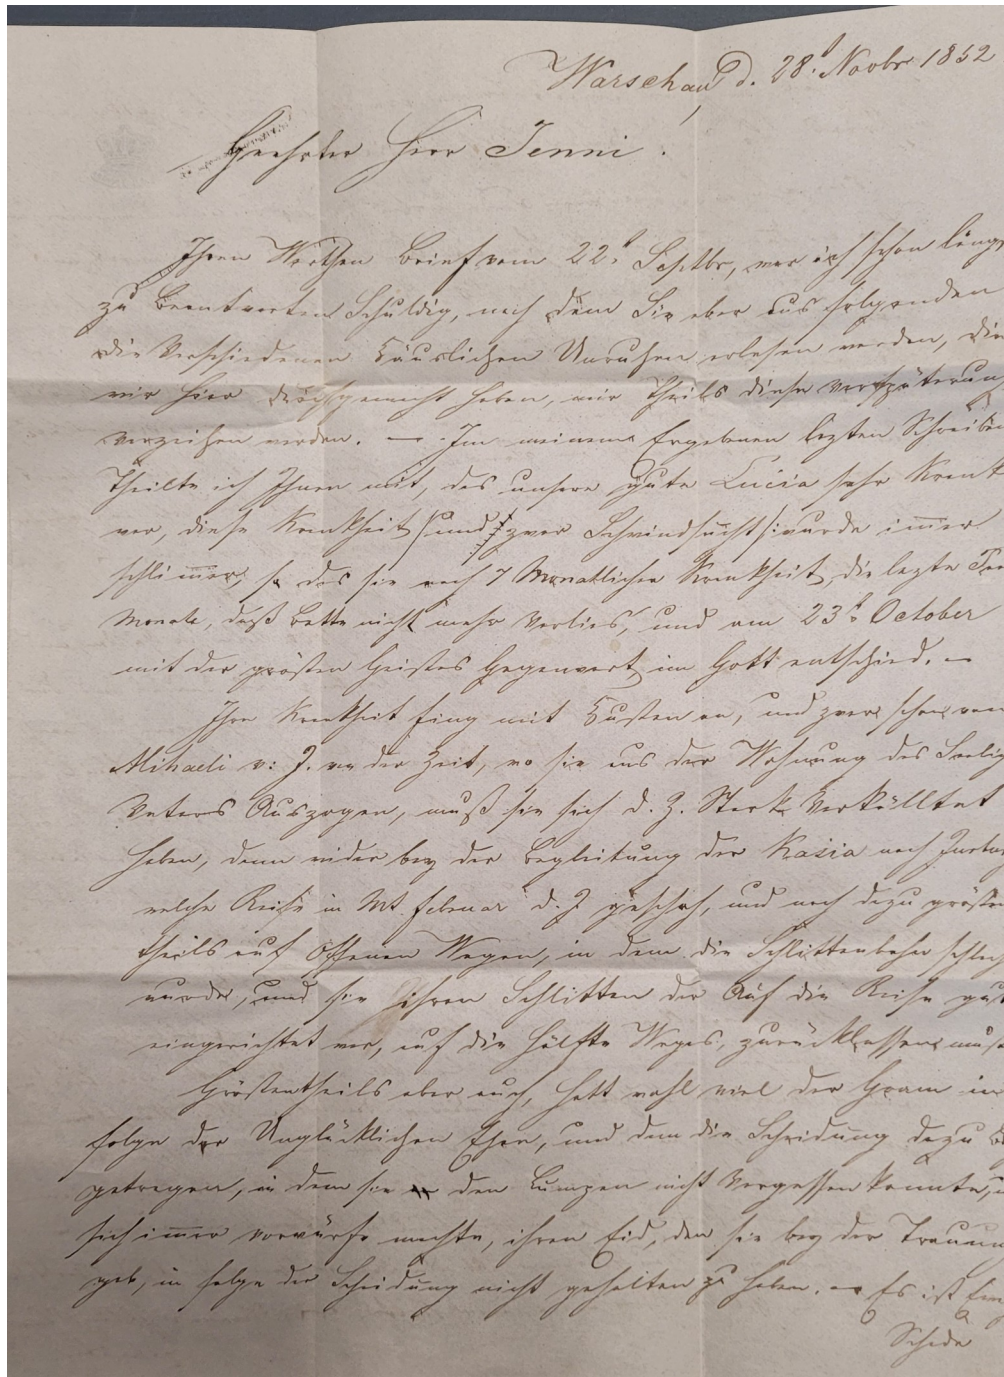 Warschau d. 28t Novbr 1852
Geehrter Herr Jenni!
Ihren Werthen Brief vom 22t Septbr, war ich schon längs
zu beantworten Schuldig, nach dem Sie aber aus folgenden
die Verschiedenen Häuslichen Unruhen erlesen werden, die
wir hier durchgemacht haben, mir Theils diese Verspäterung
verzeihen werden. — Im meinem Ergebenen lezten Schreiben
Theilte ich Ihnen mit, das unsere gute Lucia sehr Krank
war, diese Krankheit /: und zwar Schwindsucht :/ wurde immer
schlimmer, so das sie nach 7 Monatlicher Krankheit, die lezte
Monate, daß Bette nicht mehr Verlies, und am 23t October
mit der grösten Geistes Gegenwart im Gott entschied. —
Ihre Krankheit fing mit Husten an, und zwar schon von
Mihaeli v: J. an der Zeit, wo sie aus der Wohnung des Seelig
Vaters Auszogen, muß sie sich d. Z. Stark Verkälltet
haben, dann wider bey der Begleitung der Kasia nach
welche Reise in Mt. Februar d. J geschah, und noch dazu grösten
theils auf Offenen Wagen, in dem die Schlittenbahn schlech
wurde, und sie ihren Schlitten der Auf die Reise gut
eingerichtet war, auf die Hälfte Weges, zurücklassen mus
Gröstentheils aber auch, hatt wohl viel der Gram in
folge der Unglücklichen Ehe, und dan die Scheidung dazu
getragen, in dem sie den Lumpen nicht Vergessen konnte,
sich immer vorwürfe machte, ihren Eid, den sie bey der Trauun
gab, in folge der Scheidung nicht gehalten zu haben. — Es ist
Schade